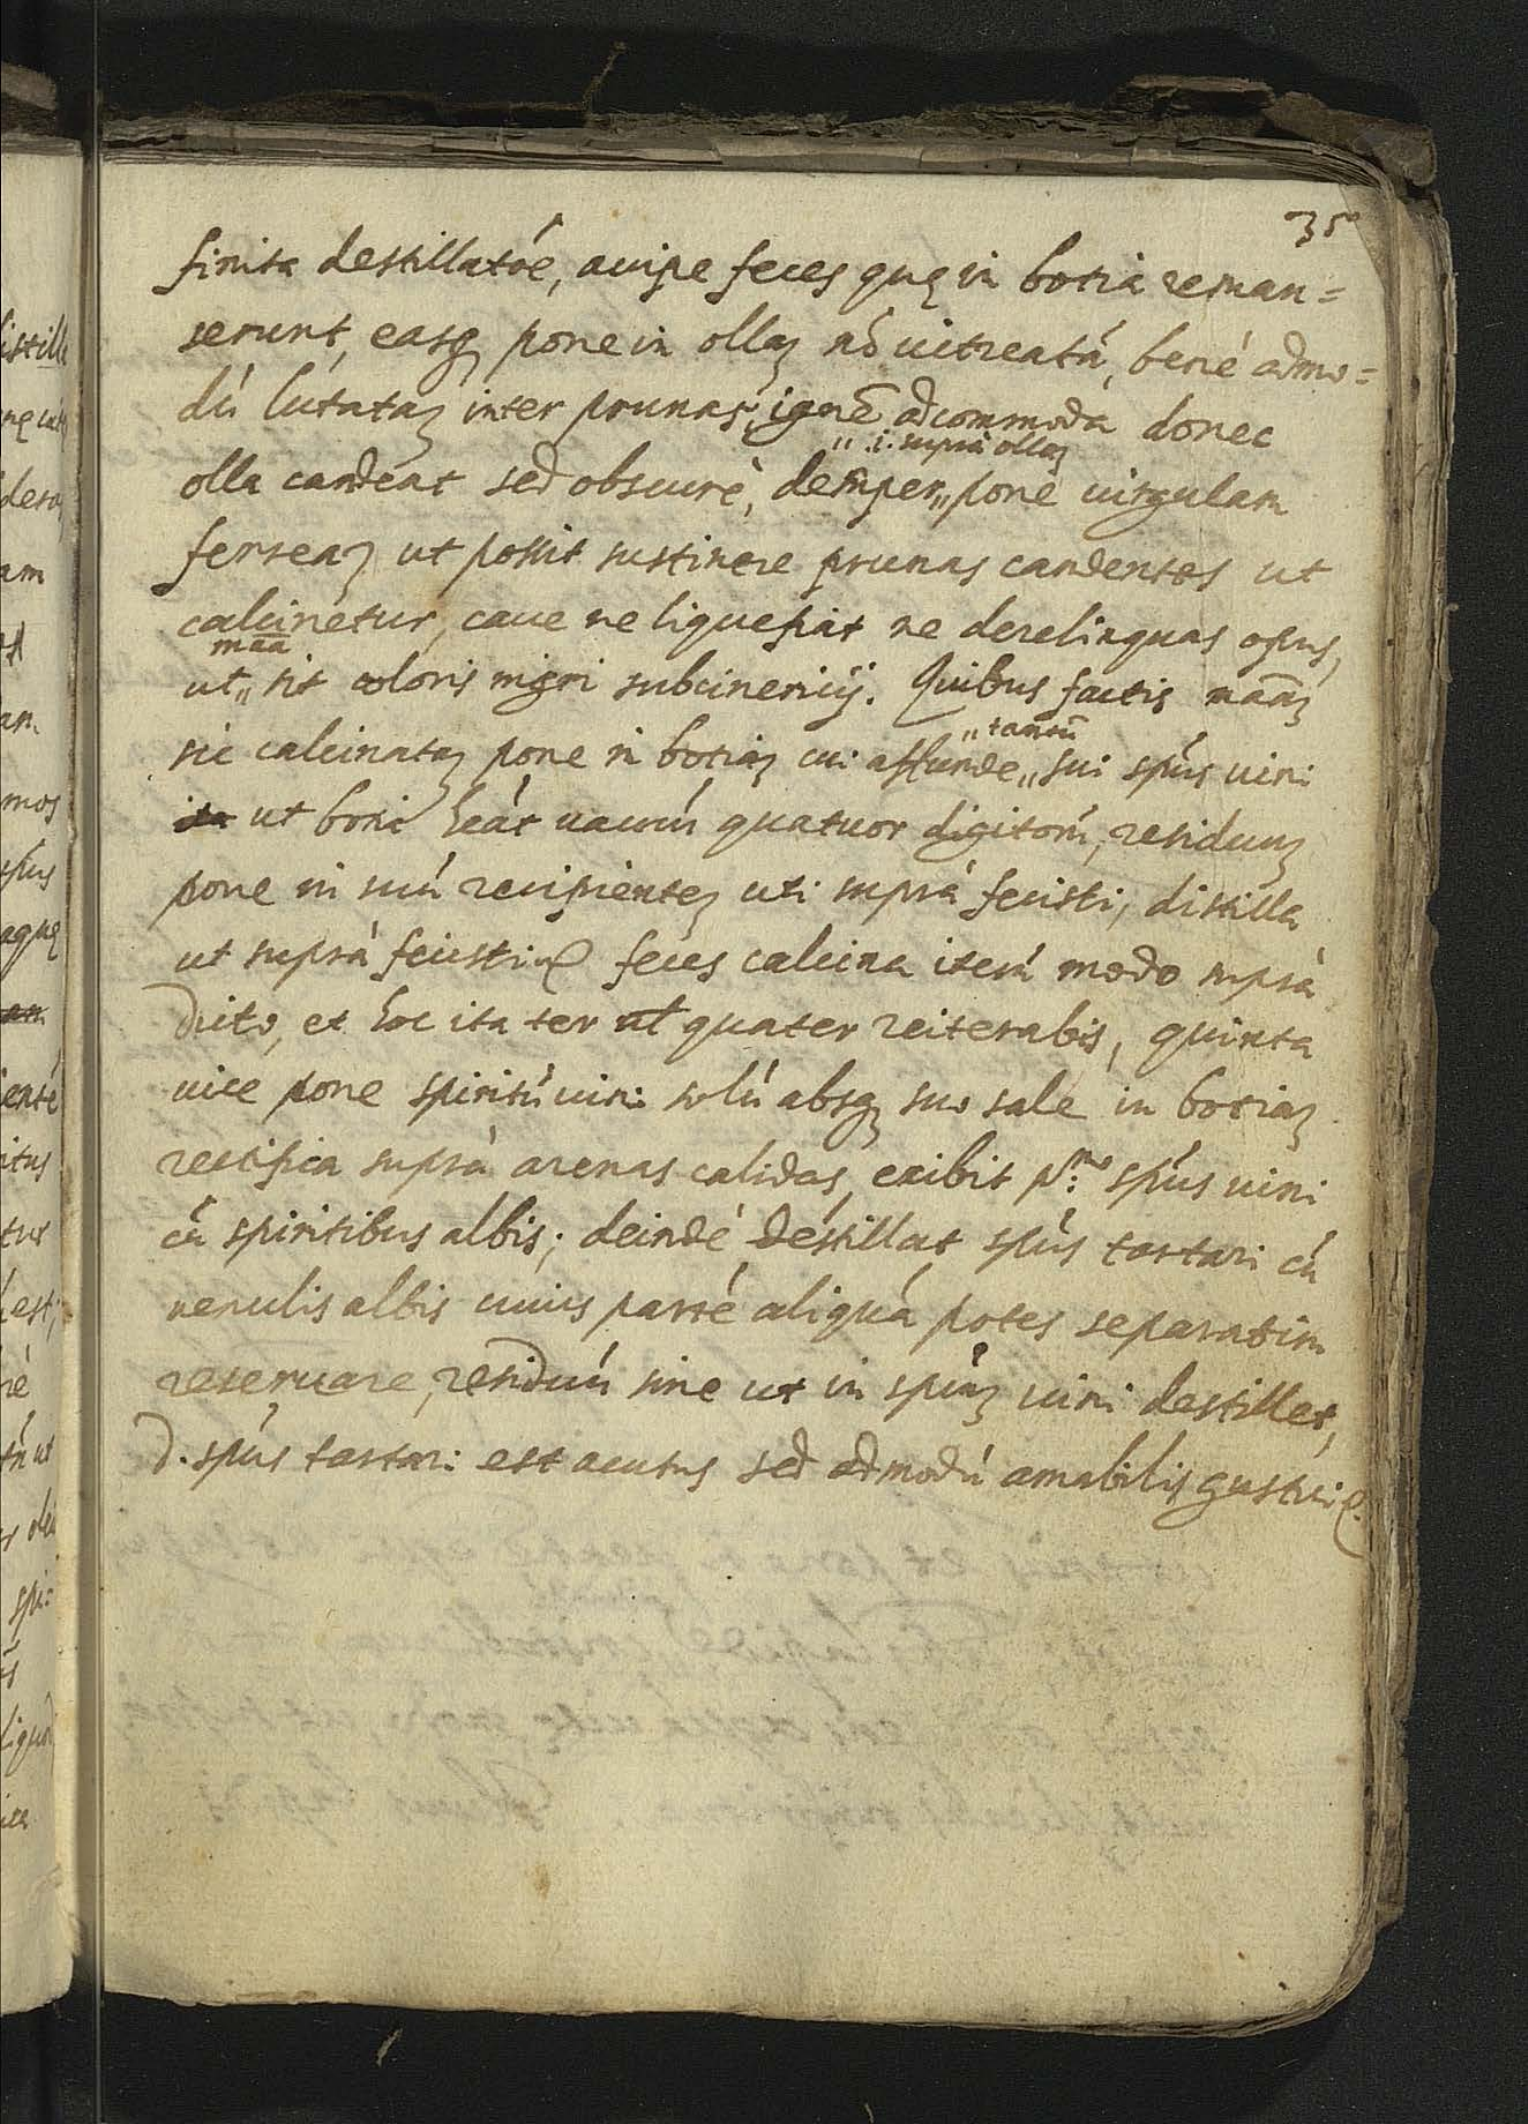 35
finita destillatóe, accipe feces quę in botia reman=
serunt, easq̢ pone in ollaȝ nó vitreatá, bené admo=
dú lutataȝ inter prunas, igné adcommoda donec
olla candeat sed obscurè, demper „ pone virgulam
„ .i. suprà ollaȝ
ferreaȝ ut possit sustinere prunas candentes ut
calcinetur, caue ne liquefiat ne derelinquas opus,
maā
ut „ sit coloris nigri subcinericij. Quibus factis maāȝ
sic calcinataȝ pone in botiaȝ cui affunde „ sui spús uini
„ tantū
ita ut botia heát uacuú quatuor digitorú, residuuȝ
pone in suú recipienteȝ uti suprà fecisti, distilla
ut suprà fecisti feces calcina iterú modo suprà
dicto, et hoc ita ter ul quater reiterabis, quinta
uice pone spiritú uini solú absq̢ suo sale in botiaȝ
rectifica suprà arenas calidas, exibit pº: spús uini
cú spiritibus albis; deindé destillat spús tartari cú
uenulis albis cuius parté aliquá potes separatim
reseruare, residuú sine ut in spúȝ uini destillet,
d. spús tartari est acutus sed admodú amabilis gustui